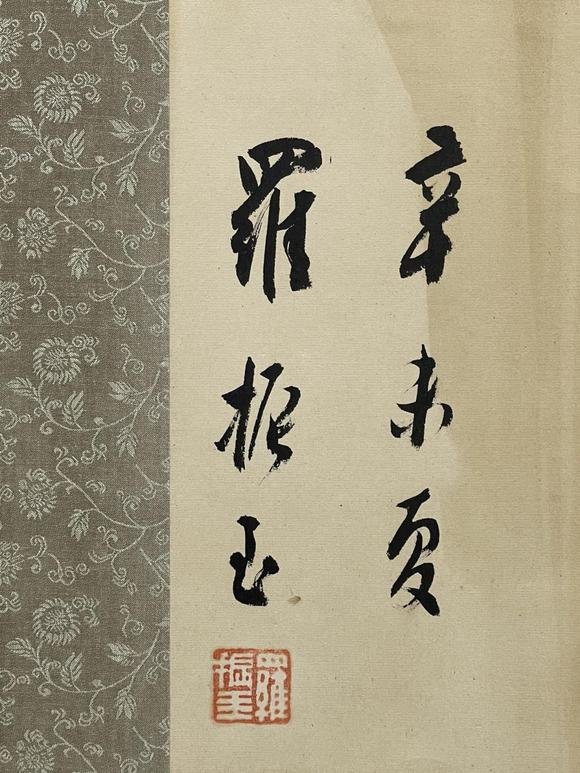 辛未夏
羅振玉
羅振玉